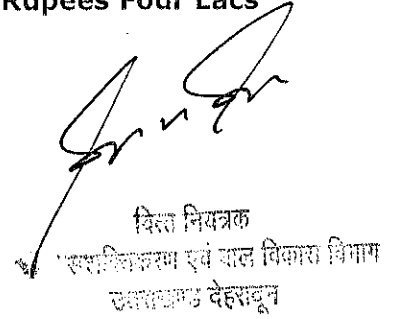 Rupees Four Lacs
वित्त नियंत्रक
सशक्तिकरण एवं बाल विकास विभाग
उत्तराखण्ड देहरादून